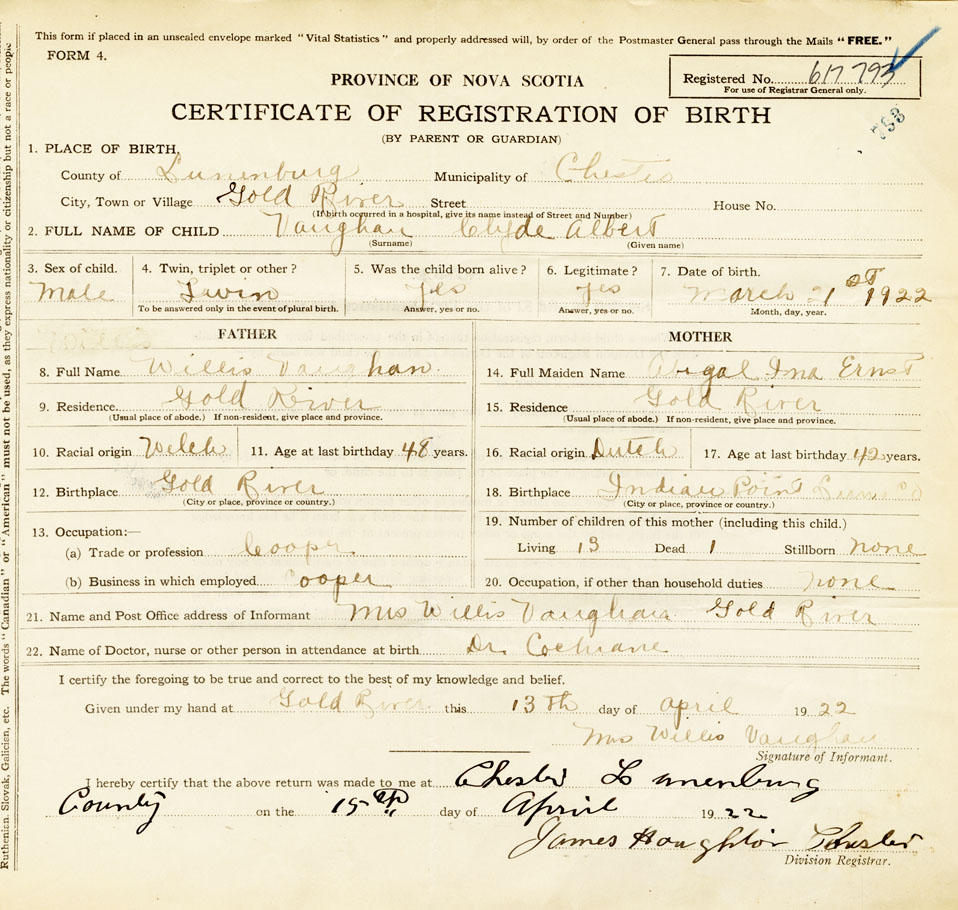 This form if placed in an unsealed envelope marked "Vital Statistics" and properly addressed will, by order of the Postmaster General pass through the Mails "FREE."
FORM 4.
PROVINCE OF NOVA SCOTIA
Registered No. 617 793
For use of Registrar General only.
CERTIFICATE OF REGISTRATION OF BIRTH
793
(BY PARENT OR GUARDIAN)
1. PLACE OF BIRTH,
County of Lunenburg Municipality of Chester
City, Town or Village Gold River Street House No.
(If birth occurred in a hospital, give its name instead of Street and Number)
2. FULL NAME OF CHILD Vaughan Clyde Albert
(Surname) (Given name)
3. Sex of child. 4. Twin, triplet or other? 5. Was the child born alive? 6. Legitimate? 7. Date of birth.
Male Twin yes yes March 21st 1922
To be answered only in the event of plural birth. Answer, yes or no. Answer, yes or no. Month, day, year.
FATHER MOTHER
8. Full Name Willis Vaughan 14. Full Maiden Name Abigal Ina Ernst
9. Residence Gold River 15. Residence Gold River
(Usual place of abode.) If non-resident, give place and province. (Usual place of abode.) If non-resident, give place and province.
10. Racial origin Welch 11. Age at last birthday 48 years. 16. Racial origin Dutch 17. Age at last birthday 42 years.
12. Birthplace Gold River 18. Birthplace Indian Point Lun Co
(City or place, province or country.) (City or place, province or country.)
13. Occupation:— 19. Number of children of this mother (including this child.)
(a) Trade or profession Cooper Living 13 Dead 1 Stillborn none
(b) Business in which employed Cooper 20. Occupation, if other than household duties none
21. Name and Post Office address of Informant Mrs Willis Vaughan Gold River
22. Name of Doctor, nurse or other person in attendance at birth Dr. Cochrane
I certify the foregoing to be true and correct to the best of my knowledge and belief.
Given under my hand at Gold River this 13th day of April 1922
Mrs Willis Vaughan
Signature of Informant.
I hereby certify that the above return was made to me at Chester Lunenburg
County on the 15th day of April 1922
James Houghton Chester
Division Registrar.
Ruthenien, Slovak, Galicien, etc. The words "Canadian" or "American" must not be used, as they express nationality or citizenship but not a race or people